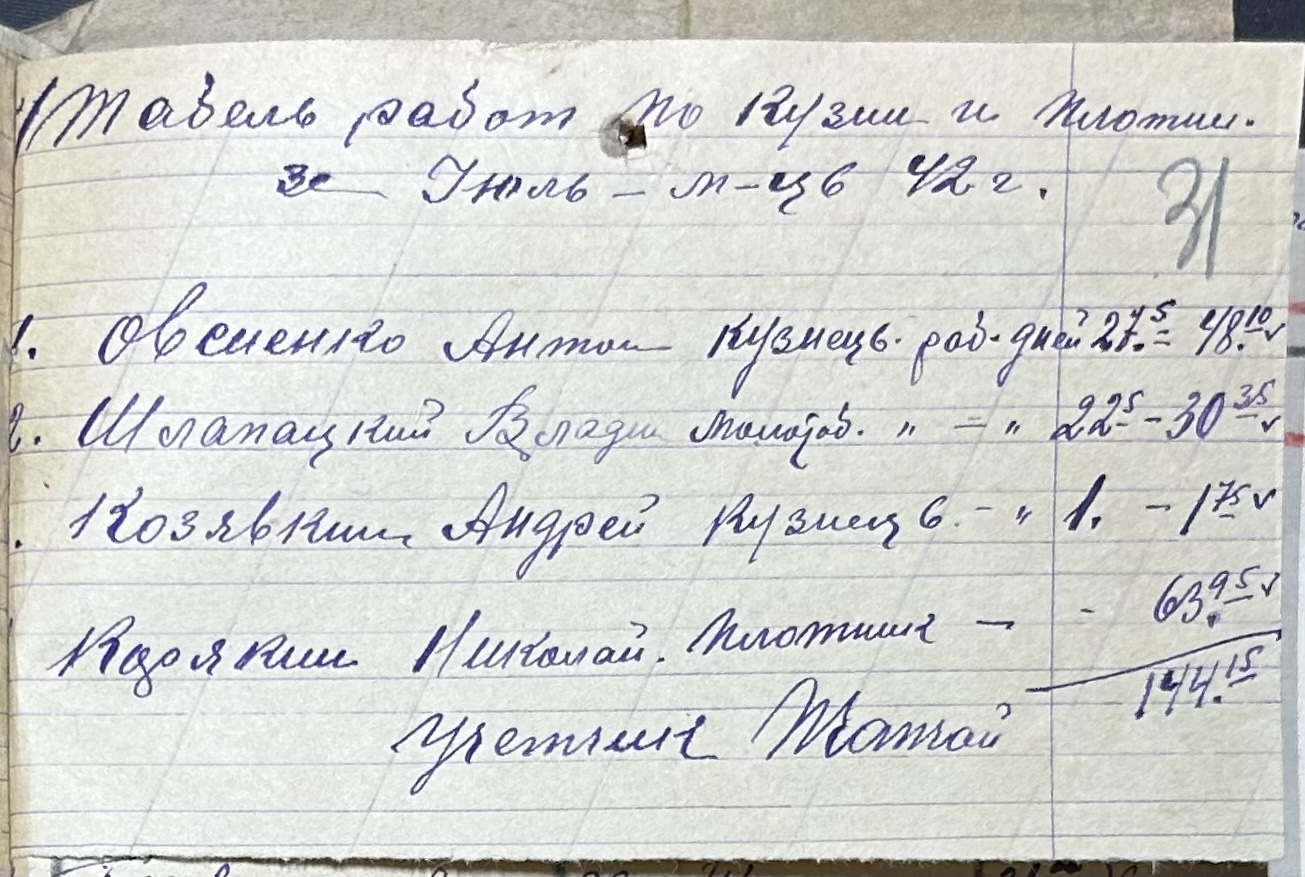 Табель работ по Кузни и плотни.
за Июль – м-цъ 42 г.
31
1. Овсиенко Антон Кузнець. раб. дней 27.5 48.10 v
2. Шлапацкий Влади молотоб. " – " 22 5 – 30 35 v
. Козявкин Андрей Кузнецъ. – " 1. – 1 75 v
Корякин Николай. плотник – - 63.95 v
144.15
учетчик